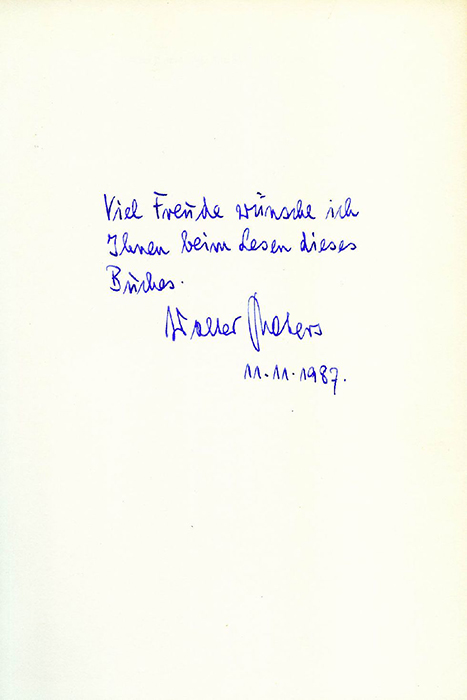 Viel Freude wünsche ich
Ihnen beim Lesen dieses
Buches.
Walter
11.11.1987.